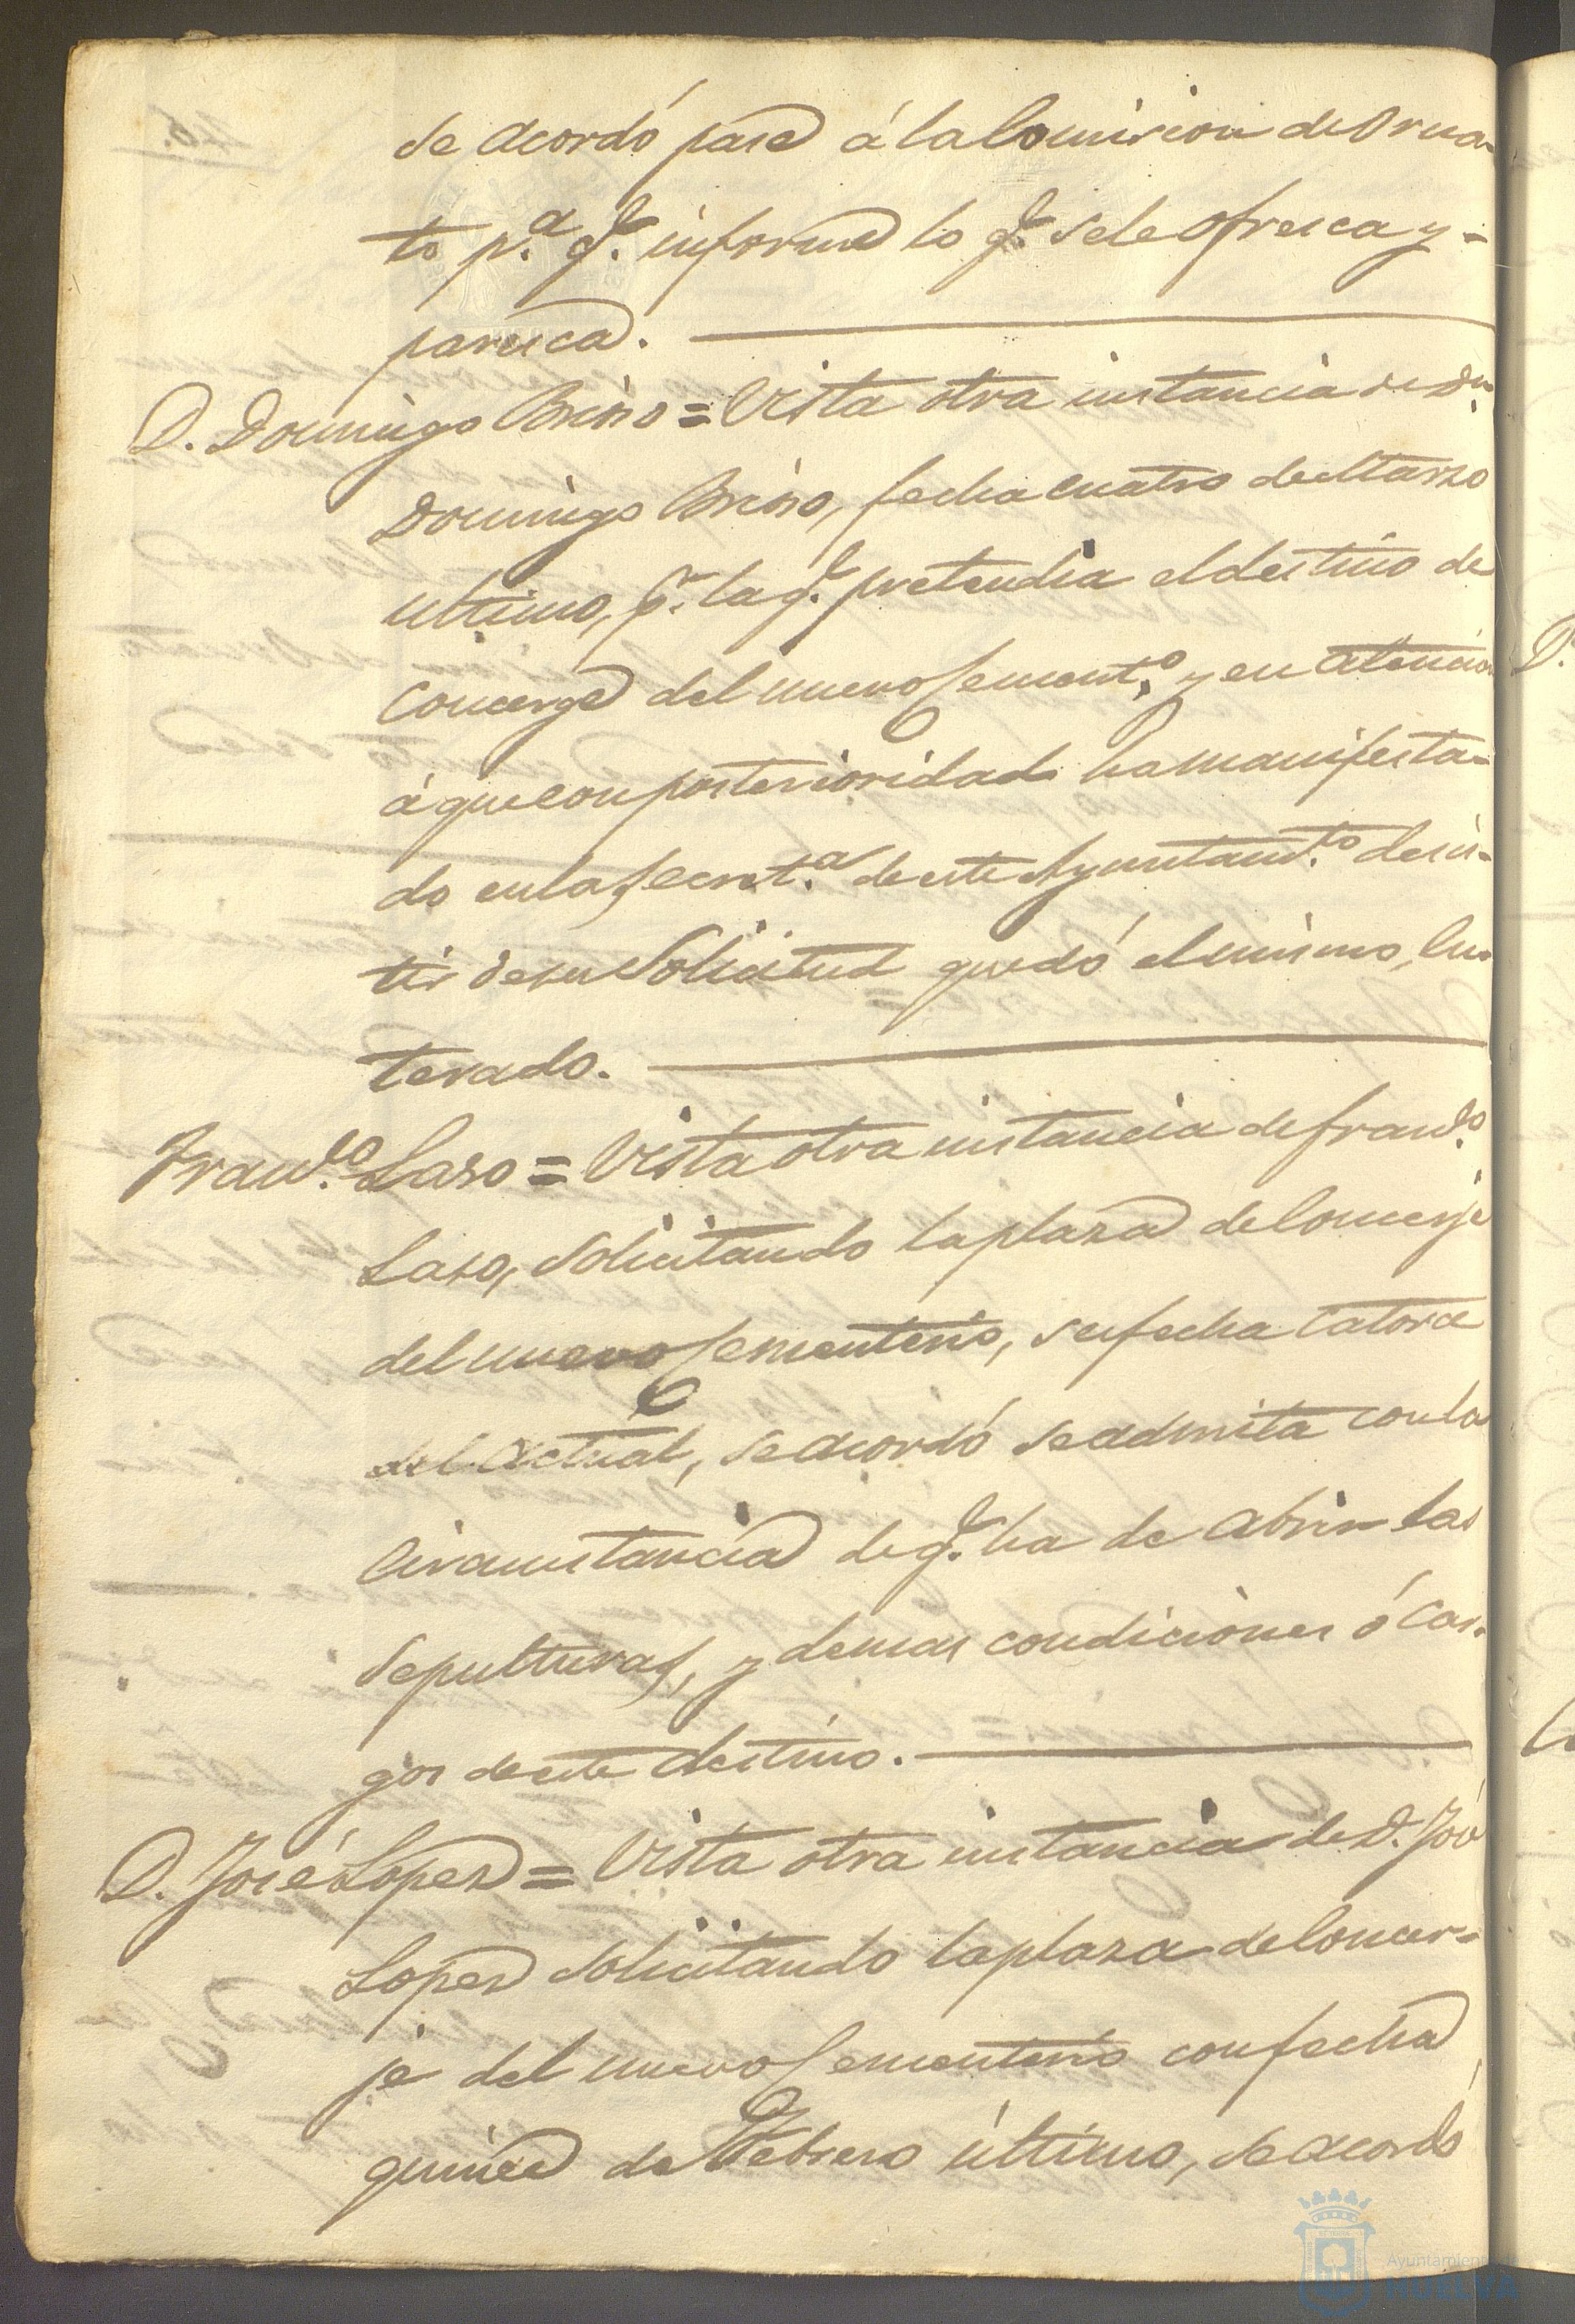 se acordó pase á la Comision de Orna-
to p.ª q.e informe lo q.e se le ofresca y =
paresca.
D. Domingo = Vista otra instancia de Dn.
Domingo, fecha cuatro de Marzo
ultimo, p.r la q.e pretendia el destino de
Concerge del nuevo Sement.o, y en atencion
á que con posterioridad ha manifesta-
do en la Secret.a de este Ayuntam.to desis-
tir de su Solicitud quedó el mismo, En-
terado.
Franc.o Laso = Vista otra instancia de Franc.o
Laso, Solicitando la plaza de Concerje
del nuevo Sementerio, su fecha catorce
del actual, se acordó se admita con la
Circunstancia de q.e ha de abrir las
Sepulturas, y demas condiciones ó car-
gos de este destino.
D. José Lopez = Vista otra instancia de D. José
Lopez Solicitando la plaza de Concer-
je del nuevo Sementerio con fecha
quince de Febrero último, se acordó
Ayuntamiento
HUELVA